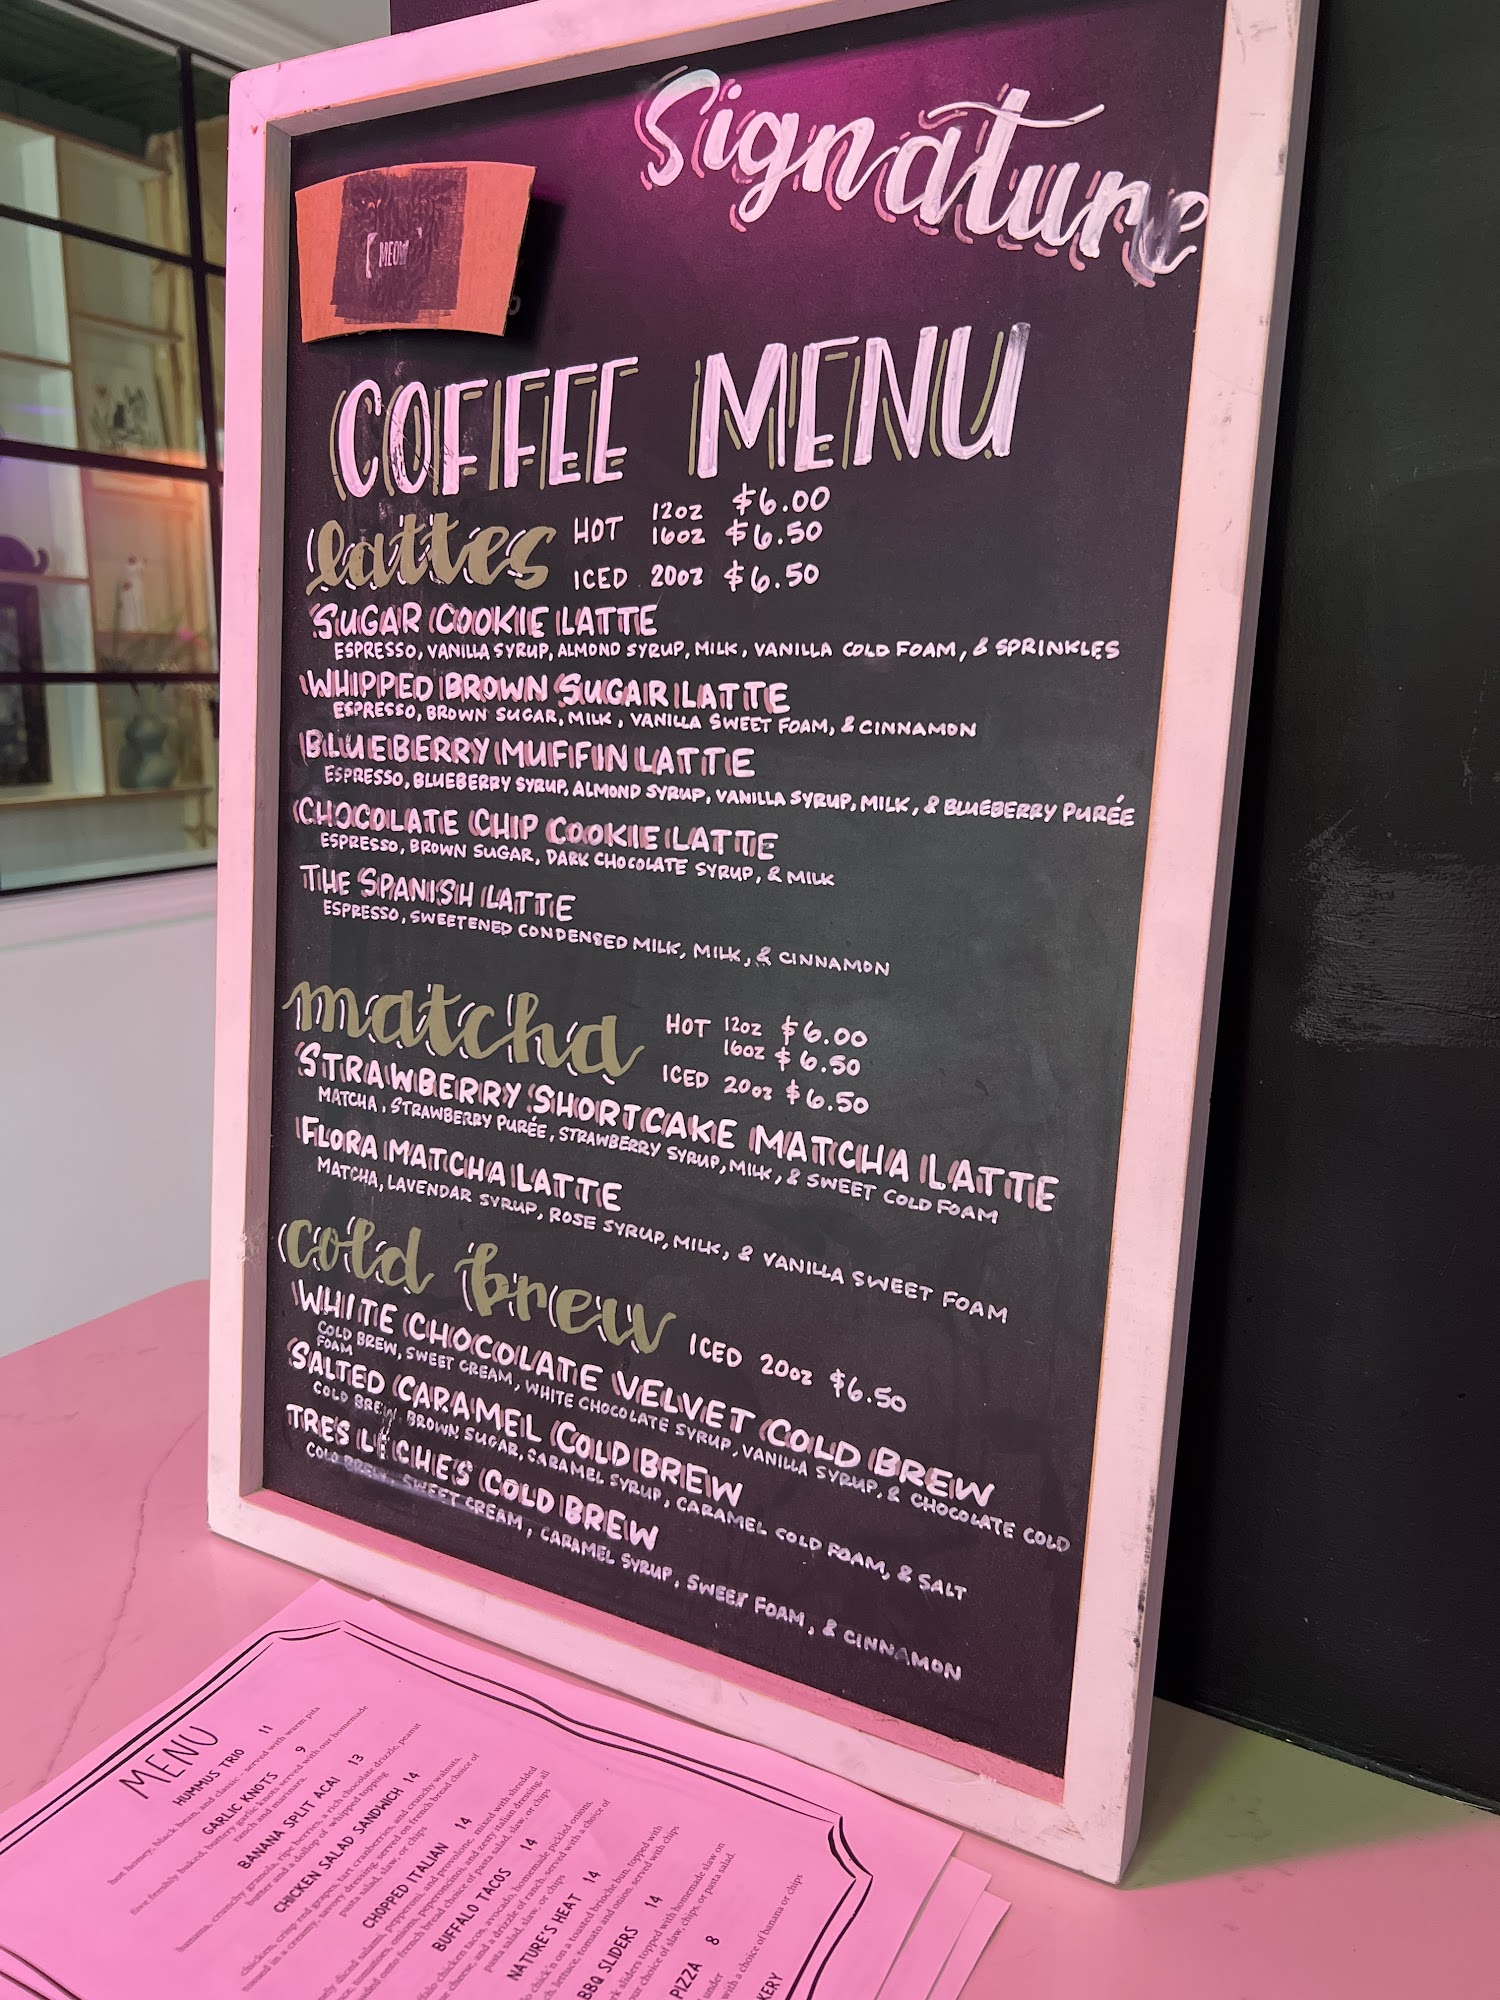 Signature
MEOW
COFFEE MENU
lattes
HOT 12oz $6.00
16oz $6.50
ICED 20oz $6.50
SUGAR COOKIE LATTE
ESPRESSO, VANILLA SYRUP, ALMOND SYRUP, MILK, VANILLA COLD FOAM, & SPRINKLES
WHIPPED BROWN SUGAR LATTE
ESPRESSO, BROWN SUGAR, MILK, VANILLA SWEET FOAM, & CINNAMON
BLUEBERRY MUFFIN LATTE
ESPRESSO, BLUEBERRY SYRUP, ALMOND SYRUP, VANILLA SYRUP, MILK, & BLUEBERRY PURÉE
CHOCOLATE CHIP COOKIE LATTE
ESPRESSO, BROWN SUGAR, DARK CHOCOLATE SYRUP, & MILK
THE SPANISH LATTE
ESPRESSO, SWEETENED CONDENSED MILK, MILK, & CINNAMON
matcha
HOT 12oz $6.00
16oz $6.50
ICED 20oz $6.50
STRAWBERRY SHORTCAKE MATCHA LATTE
MATCHA, STRAWBERRY PURÉE, STRAWBERRY SYRUP, MILK, & SWEET COLD FOAM
FLORA MATCHA LATTE
MATCHA, LAVENDAR SYRUP, ROSE SYRUP, MILK, & VANILLA SWEET FOAM
cold brew
ICED 20oz $6.50
WHITE CHOCOLATE VELVET COLD BREW
COLD BREW, SWEET CREAM, WHITE CHOCOLATE SYRUP, VANILLA SYRUP, & CHOCOLATE COLD
FOAM
SALTED CARAMEL COLD BREW
COLD BREW, BROWN SUGAR, CARAMEL SYRUP, CARAMEL COLD FOAM, & SALT
TRES LECHES COLD BREW
COLD BREW, SWEET CREAM, CARAMEL SYRUP, SWEET FOAM, & CINNAMON
MENU
HUMMUS TRIO 11
hot honey, black bean, and classic - served with warm pita
GARLIC KNOTS 9
five freshly baked, buttery garlic knots served with our homemade
ranch and marinara.
BANANA SPLIT ACAI 13
banana, crunchy granola, ripe berries, a rich chocolate drizzle, peanut
butter and a dollop of whipped topping
CHICKEN SALAD SANDWICH 14
chicken, crisp red grapes, tart cranberries, and crunchy walnuts,
tossed in a creamy, savory dressing, served on french bread choice of
pasta salad, slaw, or chips
CHOPPED ITALIAN 14
diced salami, pepperoni, and provolone, mixed with shredded
tomatoes, onions, peperoncinos, and zesty italian dressing, all
onto french bread choice of pasta salad, slaw, or chips
BUFFALO TACOS 14
chicken tacos, avocado, homemade pickled onions,
cheese, and a drizzle of ranch. served with a choice of
pasta salad, slaw, or chips
NATURE'S HEAT 14
chick'n on a toasted brioche bun, topped with
lettuce, tomato and onion. served with chips
BBQ SLIDERS 14
sliders topped with homemade slaw on
choice of slaw, chips, or pasta salad.
PIZZA 8
under
with a choice of banana or chips